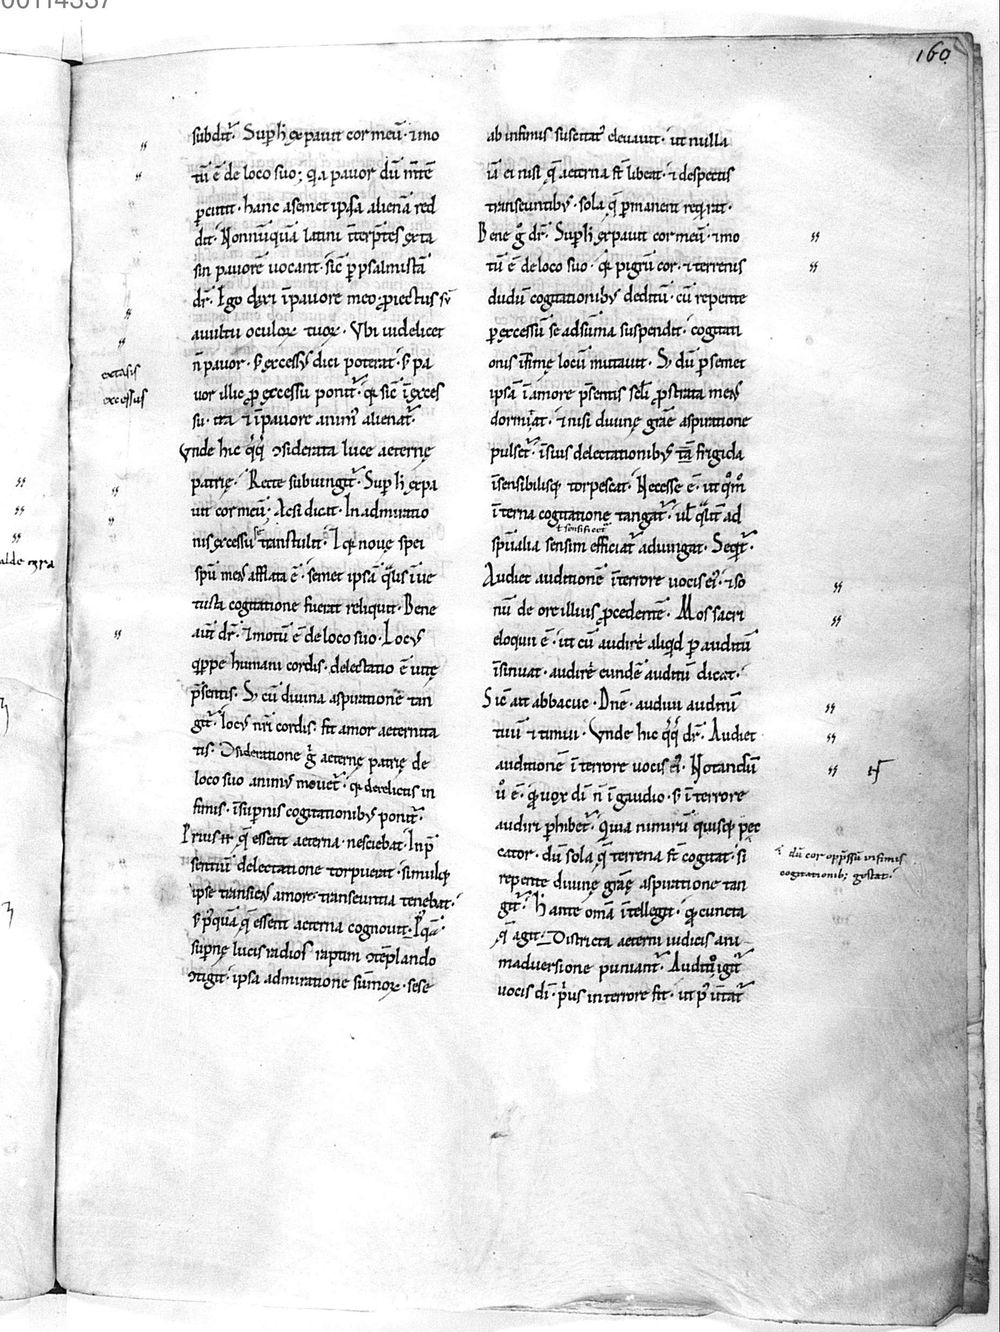 160
subdit᷑. Sup h̄ expauit cor meū. ⁊ mo
tū ē de loco suo; q̇a pauor dū m̄tē
ꝑcutit. hanc a semet ipsa alienā red
dit. Nonnūquā latini īt̄p̄tes exta
sin pauorē uocant. sic̄ ꝑ psalmistā
dr̄. Ego dixi ī pauore meo ꝓiectus sū
a uultu oculoꝝ tuoꝝ. Vbi uidelicet
n̄ pauor. s; excessꝰ dici poterat. s; pa
uor illic ꝓ excessū ponit᷑. qꝛ sic̄ ī exces
su. ita ⁊ ī pauore animꝰ alienat᷑.
Vnde hic q̇q̇ ꝯsiderata luce aeternę
patrię. Recte subiungit᷑. Sup h̄ expa
uit cor meū. Ac si dicat. In admiratio
nis excessū se tanstulit. Et qꝛ nouę spei
spū mens afflata ē. semet ipsā q̇bus īue
tusta cogitatione fuerat reliquit. Bene
aūt dr̄. ⁊ motū ē de loco suo. Locꝰ
q̇ppe humani cordis. delectatio ē uitę
p̄sentis. S; cū diuina aspiratione tan
git᷑. locꝰ nr̄i cordis. fit amor aeternita
tis. ꝯsideratione g̊ aeternę patrię de
loco suo animꝰ mouet᷑. qꝛ derelictis in
fimis. ī supnis cogitationibꝰ ponit᷑.
Prius n̄ q̄ essent aeterna. nesciebat. In p̄
sentiū delectatione torpuerat. simulqꝫ
ipse transiens amore. transeuntia tenebat.
S; p̊quā q̄ essent aeterna cognouit. P̊quā
supnę lucis radios raptim ꝯtēplando
ꝯtigit. ipsa admiratione sūmoꝝ. sese
extasis
excessus
ab infimis suscitat᷑ eleuauit. ut nulla
iā ei nisi q̄ aeterna st̄ libeat. ⁊ despectis
transeuntibꝰ. sola q̄ ꝑmanent req̇rat.
Bene g̊ dr̄. Sup h̄ expauit cor meū. ⁊ mo
tū ē de loco suo. qꝛ pigrū cor. ⁊ terrenis
dudū cogitationibꝰ deditū. cū repente
ꝑ excessū se ad sūma suspendit. cogitati
onis īfimę locū mutauit. S; dū p̄semet
ipsā ī amore p̄sentis sc̄li ꝓstrata mens
dormiat. ⁊ nisi diuinę gr̄ae aspiratione
pulset᷑. ī suis delectationibꝰ tā frigida
īsensibilisqꝫ torpescat. Necesse ē. ut qm̄
īterna cogitatione tangat᷑. ul̄ q̇liť ad
ł sensificet᷑
spūalia sensim efficiat᷑ aduingat. Seqt᷑.
Audiet auditionē ī terrore uocis ei᷒. ⁊ so
nū de ore illius ꝓcedentē. Mos sacri
eloquii ē. ut cū audire aliqd ꝑ auditū
īsinuat. audire eundē auditū dicat.
Sic̄ ait abbacuc. Dn̄e. audiui auditū
tuū ⁊ timui. Vnde hic q̇q̇ dr̄. Audiet
auditionē ī terrore uocis ei᷒. Notandū
u̇ ē. qꝛ uox dī n̄ ī gaudio. s; ī terrore
audiri ꝑhibet᷑. Quia nimirū quisqꝫ pec
cator. dū sola q̄ terrena st̄ cogitat. si
repente diuinę gr̄aę aspiratione tan
git᷑. h̄ ante om̄a ītellegit. qꝛ cuncta
q̄ agit. Districta aeterni iudicis ani
maduersione puniant᷑. Auditꝰ igit᷑
uocis dī. p̄us in terrore fit. ut p̊ ū̄tat᷑
dū cor opp̄ssū infimis
cogitationib; gestat.